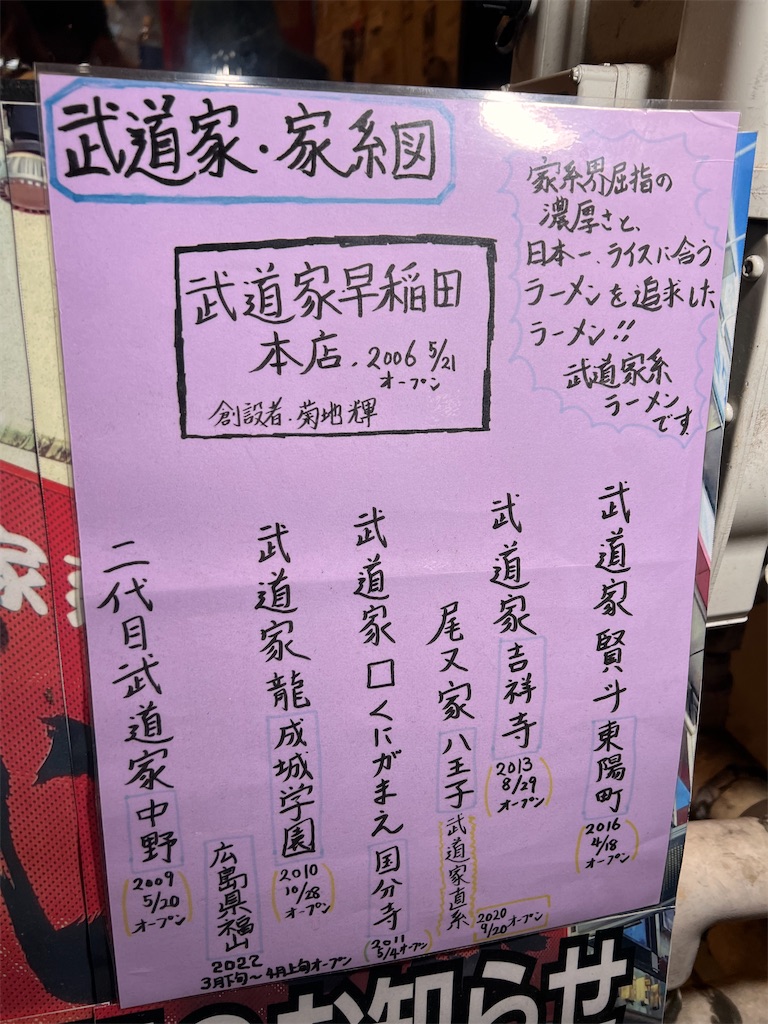 武道家・家系図
家系界屈指の
濃厚さと、
日本一、ライスに合う
ラーメンを追求した
ラーメン!!
武道家系
ラーメン
です
武道家早稲田
本店.2006 5/21
オープン
創設者.菊地輝
武道家賢斗 東陽町
2016
4/18
オープン
武道家 吉祥寺
2013
8/29
オープン
尾又家 八王子
武道家直系
2020
9/20オープン
武道家 口くにがまえ 国分寺
2011
5/4オープン
武道家 龍 成城学園
2010
10/28
オープン
広島県福山
2022
3月下旬〜4月上旬オープン
二代目武道家 中野
2009
5/20
オープン
のお知らせ